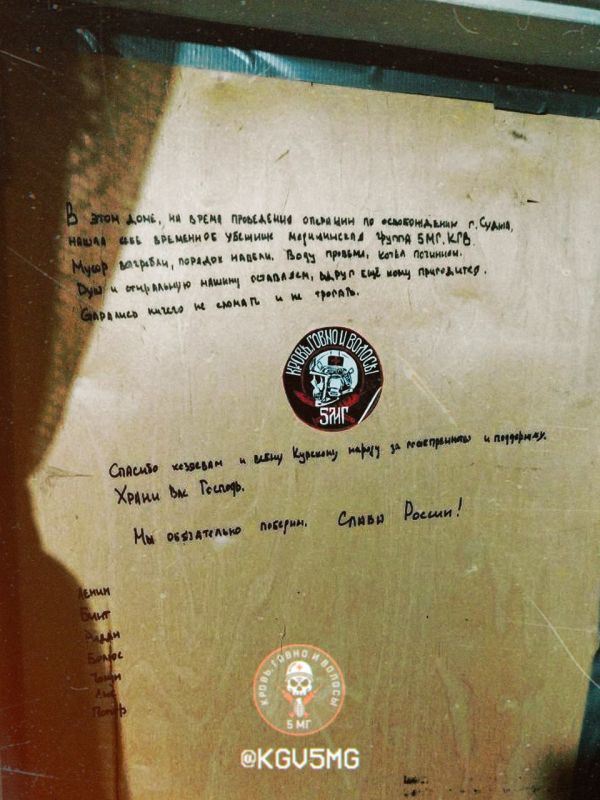 В этом доме, на время проведения операции по освобождению г. Суджа,
нашла себе временное убежище медицинская группа 5МГ.КГВ.
Мусор выгребли, порядок навели. Воду провели, котёл починили.
Душ и стиральную машину оставляем, вдруг ещё кому пригодится.
Старались ничего не сломать и не трогать.
КРОВЬ, ГОВНО И ВОЛОСЫ
5МГ
Спасибо хозяевам и всему Курскому народу за гостеприимство и поддержку.
Храни Вас Господь.
Мы обязательно победим. Слава России!
Ленин
Бинт
Болюс
КРОВЬ, ГОВНО И ВОЛОСЫ
5 МГ
@KGV5MG